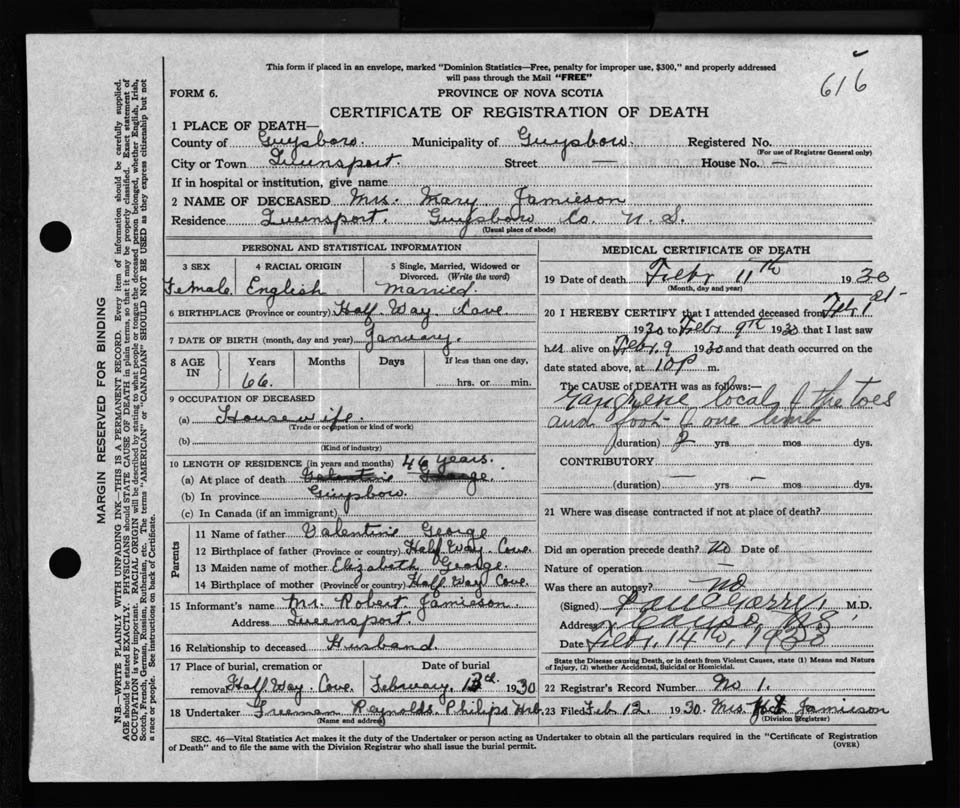 This form if placed in an envelope, marked "Dominion Statistics—Free, penalty for improper use, $300," and properly addressed
will pass through the Mail "FREE"
616
FORM 6.
PROVINCE OF NOVA SCOTIA
CERTIFICATE OF REGISTRATION OF DEATH
1 PLACE OF DEATH—
County of Guysboro. Municipality of Guysboro. Registered No.
(For use of Registrar General only)
City or Town Queensport. Street — House No. —
If in hospital or institution, give name
2 NAME OF DECEASED Mrs. Mary Jamieson
Residence Queensport. Guysboro Co. N. S.
(Usual place of abode)
PERSONAL AND STATISTICAL INFORMATION
3 SEX 4 RACIAL ORIGIN 5 Single, Married, Widowed or
Divorced. (Write the word)
Female. English Married.
6 BIRTHPLACE (Province or country) Half Way Cove
7 DATE OF BIRTH (month, day and year) January.
8 AGE IN Years Months Days If less than one day,
66. hrs. or min.
9 OCCUPATION OF DECEASED
(a) Housewife.
(Trade or occupation or kind of work)
(b)
(Kind of industry)
10 LENGTH OF RESIDENCE (in years and months) 46 years.
(a) At place of death Valentine George.
(b) In province Guysboro.
(c) In Canada (if an immigrant)
Parents
11 Name of father Valentine George
12 Birthplace of father (Province or country) Half Way Cove
13 Maiden name of mother Elizabeth George.
14 Birthplace of mother (Province or country) Half Way Cove
15 Informant's name Mr. Robert Jamieson
Address Queensport.
16 Relationship to deceased Husband
17 Place of burial, cremation or Date of burial
removal Half Way Cove. February 13th. 1930
18 Undertaker Freeman Reynolds. Philips Hrb.
(Name and address)
MEDICAL CERTIFICATE OF DEATH
19 Date of death Febr 11th 1930
(Month, day and year)
20 I HEREBY CERTIFY that I attended deceased from Feb 1st
1930 to Febr 9th 1930 that I last saw
her alive on Febr. 9 1930 and that death occurred on the
date stated above, at 10 P m.
The CAUSE of DEATH was as follows:—
Gangrene local of the toes
and foot of one limb
(duration) 2 yrs mos dys.
CONTRIBUTORY —
(duration) — yrs. — mos. dys.
21 Where was disease contracted if not at place of death?
Did an operation precede death? No Date of
Nature of operation —
Was there an autopsy? No
(Signed) M.D.
Address Canso, N.S
Date Febr. 14th, 1930
State the Disease causing Death, or in death from Violent Causes, state (1) Means and Nature
of Injury, (2) whether Accidental, Suicidal or Homicidal.
22 Registrar's Record Number No 1.
23 Filed Feb 12 1930. Mrs. Jamieson
(Division Registrar)
SEC. 46—Vital Statistics Act makes it the duty of the Undertaker or person acting as Undertaker to obtain all the particulars required in the "Certificate of Registration
of Death" and to file the same with the Division Registrar who shall issue the burial permit.
(OVER)
MARGIN RESERVED FOR BINDING
N.B.—WRITE PLAINLY WITH UNFADING INK—THIS IS A PERMANENT RECORD. Every item of information should be carefully supplied.
AGE should be stated EXACTLY. PHYSICIANS should STATE CAUSE OF DEATH in plain terms, so that it may be properly classified. Exact statement of
OCCUPATION is very important. RACIAL ORIGIN will be described by stating to what people or tongue the deceased person belonged, whether English, Irish,
Scotch, French, German, Russian, Ruthenian, etc. The terms "AMERICAN" or "CANADIAN" SHOULD NOT BE USED as they express citizenship but not
a race or people. See instructions on back of Certificate.